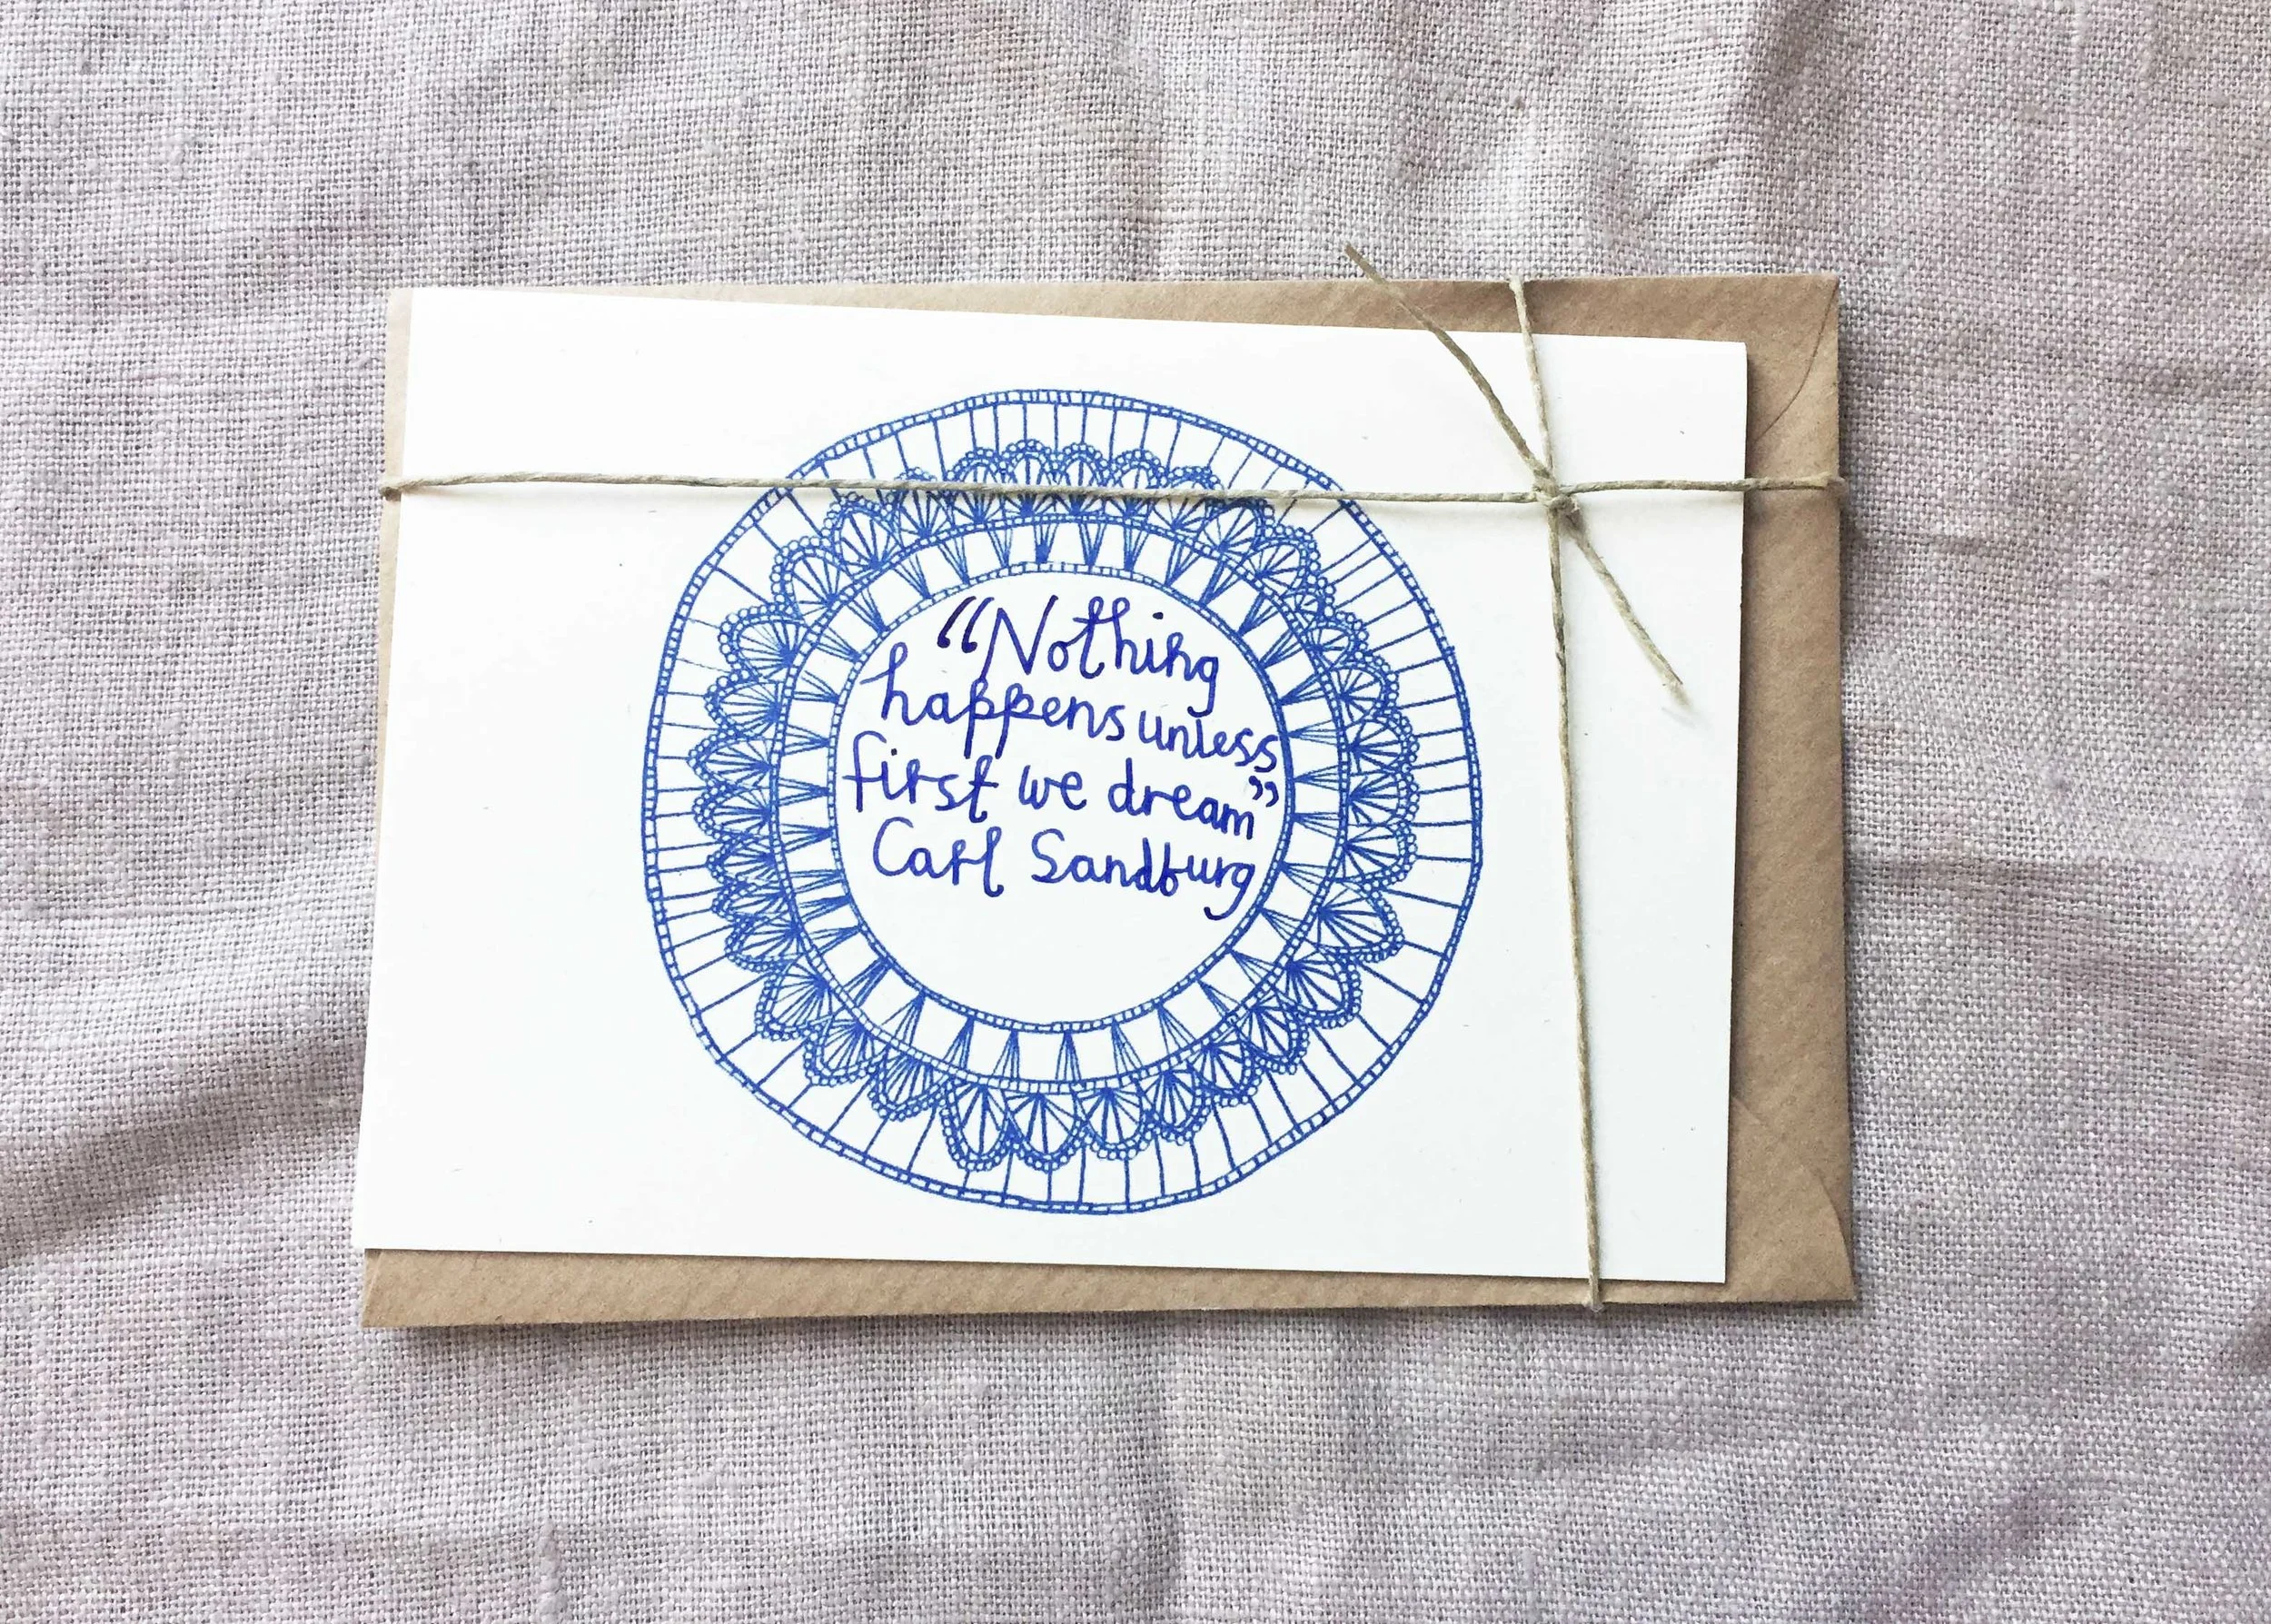 “Nothing
happens unless
first we dream”
Carl Sandburg